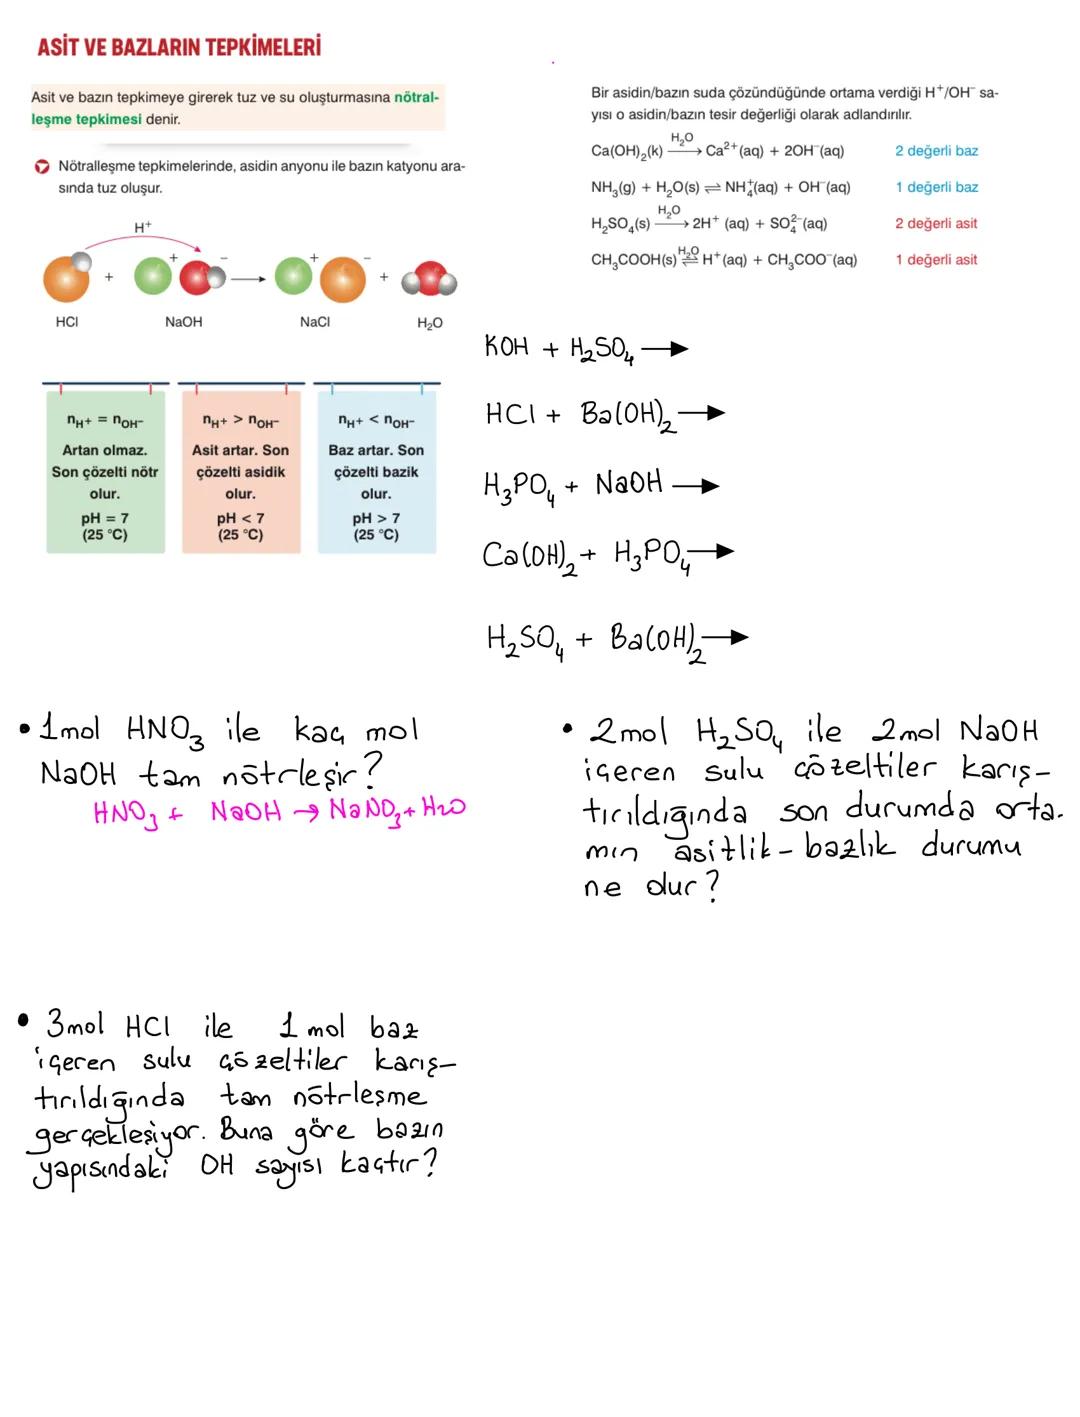 ASİT VE BAZLARIN TEPKİMELERİ
Asit ve bazın tepkimeye girerek tuz ve su oluşturmasına nötral-
leşme tepkimesi denir.
Nötralleşme tepkimelerinde, asidin anyonu ile bazın katyonu ara-
sında tuz oluşur.
H⁺
+ + − → + − +
HCl NaOH NaCl H₂O
nH+ = nOH−
Artan olmaz.
Son çözelti nötr
olur.
pH = 7
(25 °C)
nH+ > nOH−
Asit artar. Son
çözelti asidik
olur.
pH < 7
(25 °C)
nH+ < nOH−
Baz artar. Son
çözelti bazik
olur.
pH > 7
(25 °C)
Bir asidin/bazın suda çözündüğünde ortama verdiği H⁺/OH⁻ sa-
yısı o asidin/bazın tesir değerliği olarak adlandırılır.
H₂O
Ca(OH)₂(k) → Ca²⁺(aq) + 2OH⁻(aq) 2 değerli baz
NH₃(g) + H₂O(s) ⇌ NH₄⁺(aq) + OH⁻(aq) 1 değerli baz
H₂O
H₂SO₄(s) → 2H⁺ (aq) + SO₄²⁻(aq) 2 değerli asit
H₂O
CH₃COOH(s) ⇌ H⁺(aq) + CH₃COO⁻(aq) 1 değerli asit
KOH + H₂SO₄ →
HCl + Ba(OH)₂ →
H₃PO₄ + NaOH →
Ca(OH)₂ + H₃PO₄ →
H₂SO₄ + Ba(OH)₂ →
• 1mol HNO₃ ile kaç mol
NaOH tam nötrleşir?
HNO₃ + NaOH → NaNO₃ + H₂O
• 2mol H₂SO₄ ile 2mol NaOH
içeren sulu çözeltiler karış-
tırıldığında son durumda orta-
mın asitlik - bazlık durumu
ne olur?
• 3mol HCl ile 1 mol baz
içeren sulu çözeltiler karış-
tırıldığında tam nötrleşme
gerçekleşiyor. Buna göre bazın
yapısındaki OH sayısı kaçtır?